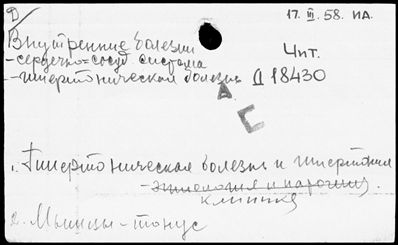 Д
17. III. 58. ИА.
Внутренние болезни
- сердечно=сосуд. система
Чит.
- гипертоническая болезнь Д 18430
А
С
1. Гипертоническая болезнь и гипертония
- этиология и патогенез.
клиника
2. Мышцы - тонус